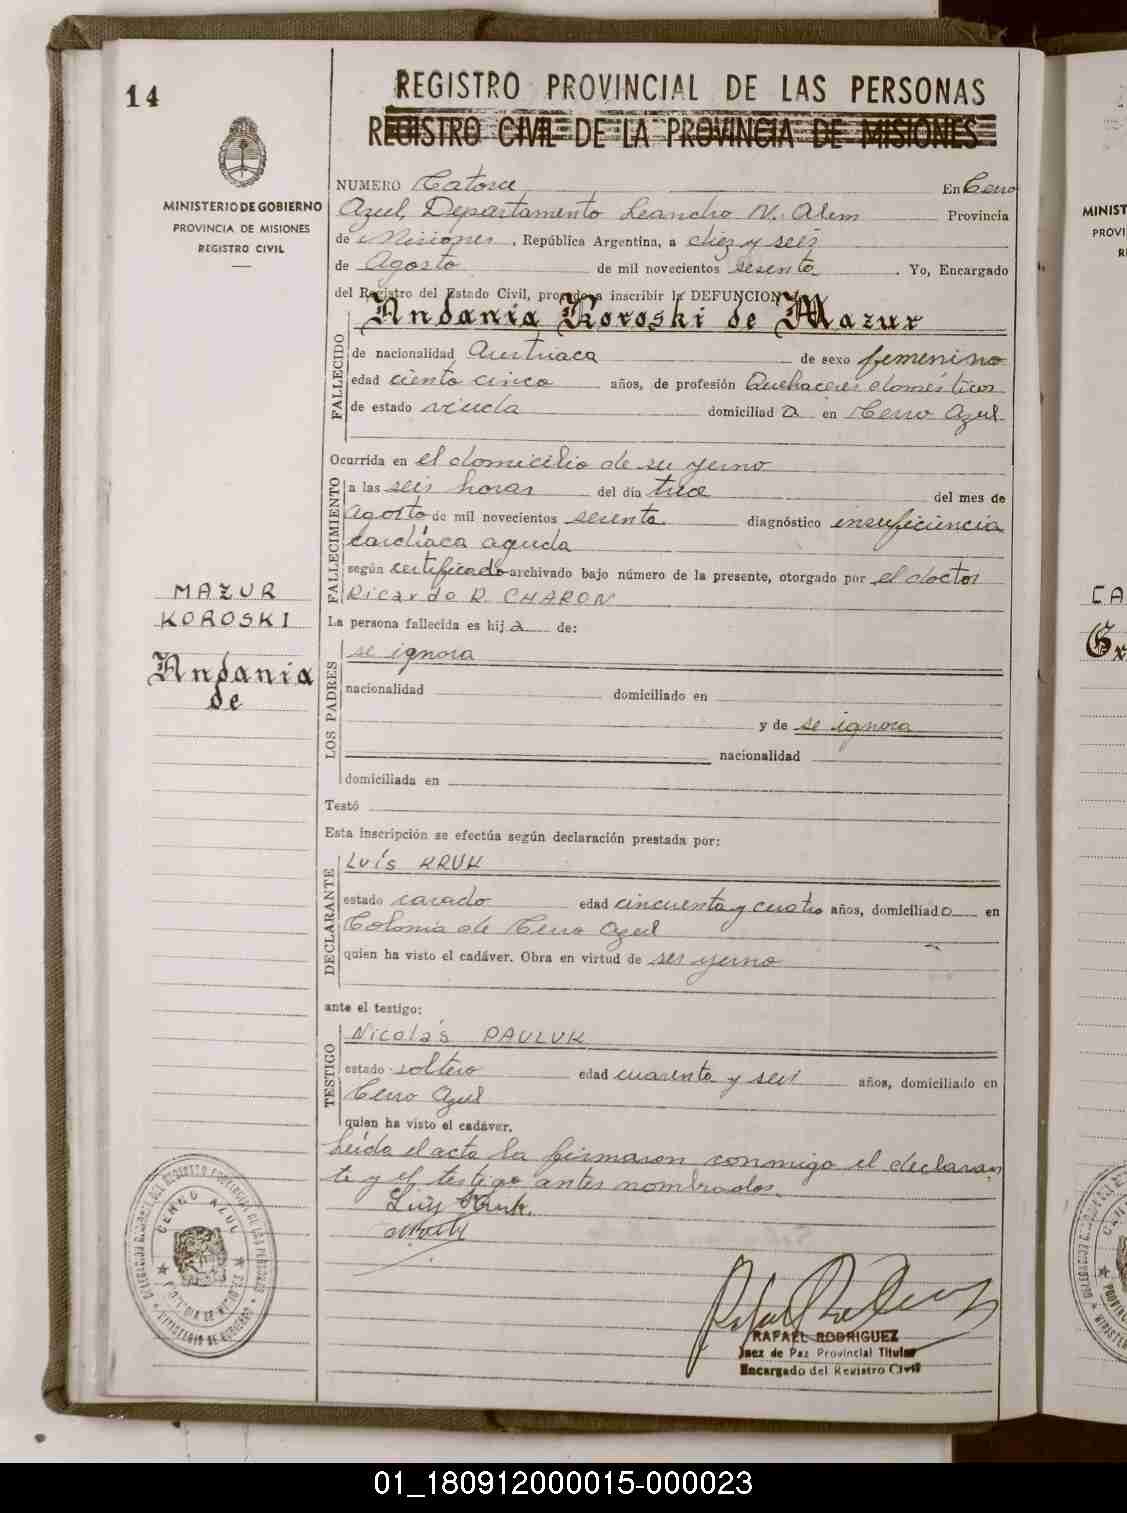 14
REGISTRO PROVINCIAL DE LAS PERSONAS
REGISTRO CIVIL DE LA PROVINCIA DE MISIONES
MINISTERIO DE GOBIERNO
PROVINCIA DE MISIONES
REGISTRO CIVIL
NUMERO Catorce En Cerro
Azul, Departamento Leandro N. Alem Provincia
de Misiones, República Argentina, a diez y seis
de Agosto de mil novecientos sesenta. Yo, Encargado
del Registro del Estado Civil, procedo a inscribir la DEFUNCION
Andania Koroski de Mazur
FALLECIDO
de nacionalidad Austriaca de sexo femenino
edad ciento cinco años, de profesión Quehaceres domésticos
de estado viuda domiciliad a en Cerro Azul
Ocurrida en el domicilio de su yerno
FALLECIMIENTO
a las seis horas del día trece del mes de
Agosto de mil novecientos sesenta diagnóstico insuficiencia
cardíaca aguda
según certificado archivado bajo número de la presente, otorgado por el doctor
Ricardo R. CHARON
MAZUR
KOROSKI
Andania
de
La persona fallecida es hij a de:
LOS PADRES
se ignora
nacionalidad domiciliado en
y de se ignora
nacionalidad
domiciliada en
Testó
Esta inscripción se efectúa según declaración prestada por:
DECLARANTE
Luís KRUK
estado casado edad cincuenta y cuatro años, domiciliado en
Colonia de Cerro Azul
quien ha visto el cadáver. Obra en virtud de ser yerno
ante el testigo:
TESTIGO
Nicolás PAULUK
estado soltero edad cuarenta y seis años, domiciliado en
Cerro Azul
quien ha visto el cadáver.
Leída el acta la firmaron conmigo el declaran
te y el testigo antes nombrados.
Luis Kruk.
CERRO AZUL
RAFAEL RODRIGUEZ
Juez de Paz Provincial Titular
Encargado del Registro Civil
MINIST
PROVI
R
CA
01_180912000015-000023